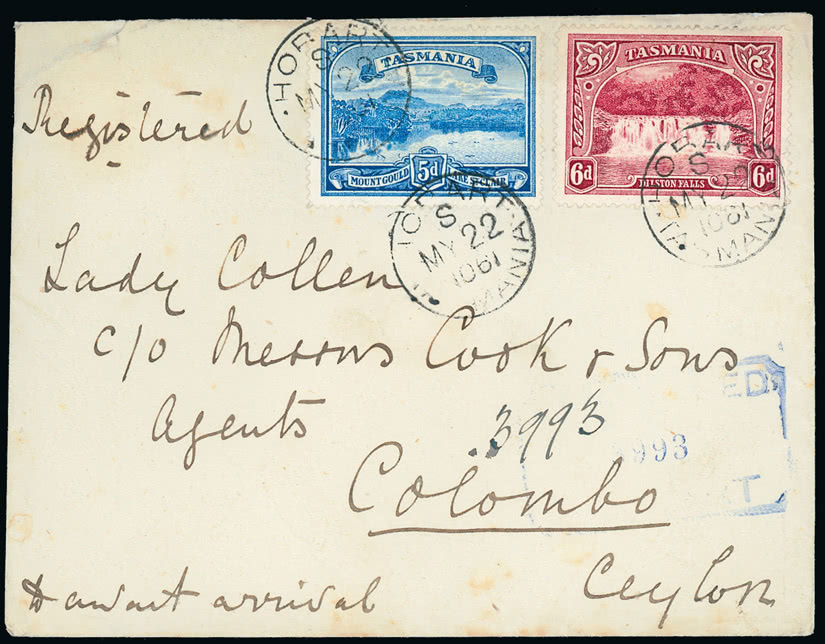 TASMANIA
MOUNT GOULD 5d LAKE ST CLAIR
TASMANIA
6d DILSTON FALLS 6d
HOBART
S
MY 22
HOBART · TASMANIA
S
MY 22
1061
HOBART · TASMANIA
S
MY 22
1061
Registered
Lady Collen
c/o Messrs Cook & Sons
Agents
3993
3993
Colombo
Ceylon
to await arrival